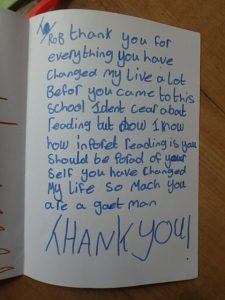 Rob thank you for
everything you have
Changed my live a lot
Befor you came to this
School I dent cear about
reading but now I know
how inforet reading is you
Should be Porod of your
Self you have Changed
My life So Mach you
are a gaet man
THANK YOU!